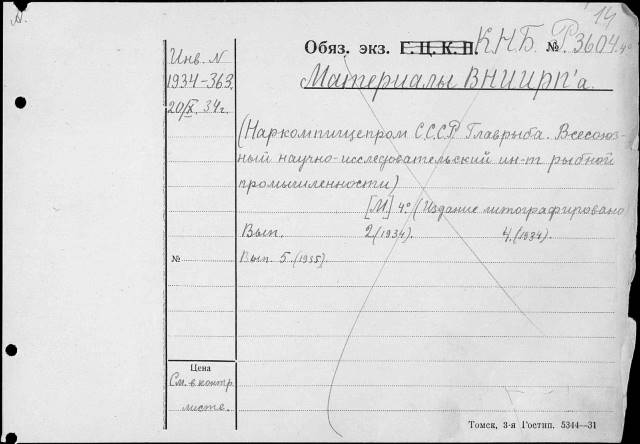 14
Обяз. экз. Г. Ц. К. П. К.Н.Б. № Р.3604.4°
Инв. N
1934-363.
20/X. 34г.
Материалы ВНИИРП'а.
(Наркомпищепром СССР Главрыба. Всесоюз-
ный научно-исследовательский ин-т рыбной
промышленности)
[М] 4°. (Издание литографировано
Вып. 2 (1934). 4. (1934).
№ Вып. 5. (1935).
Цена
См. в контр.
листе.
Томск, 3-я Гостип. 5344—31